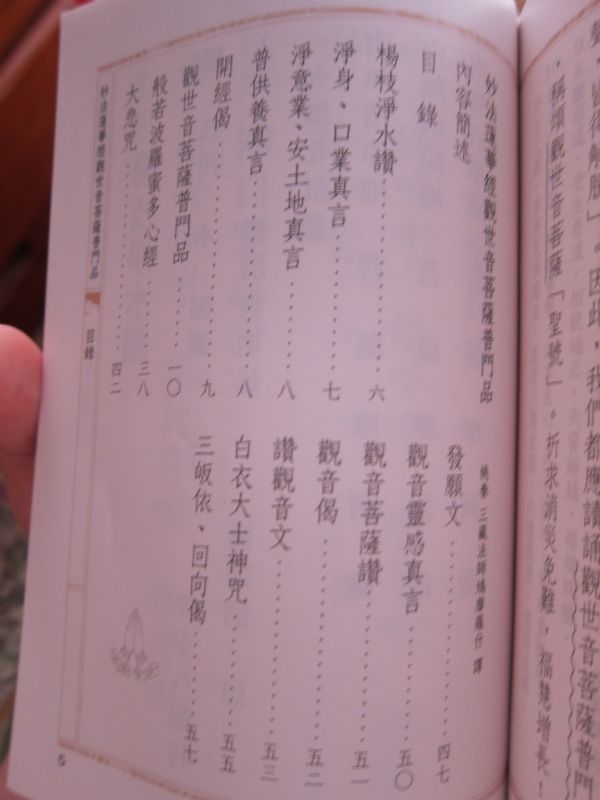 皆得解脫」。因此，我們都應讀誦觀世音菩薩
，稱頌觀世音菩薩「聖號」。祈求消災免難，福慧增長！
妙法蓮華經觀世音菩薩普門品
姚秦 三藏法師鳩摩羅什 譯
內容簡述
目錄
楊枝淨水讚‧‧‧‧‧‧六
淨身、口業真言‧‧‧‧‧‧七
淨意業、安土地真言‧‧‧‧‧‧八
普供養真言‧‧‧‧‧‧八
開經偈‧‧‧‧‧‧九
觀世音菩薩普門品‧‧‧‧‧‧一〇
般若波羅蜜多心經‧‧‧‧‧‧三八
大悲咒‧‧‧‧‧‧四二
發願文‧‧‧‧‧‧四七
觀音靈感真言‧‧‧‧‧‧五〇
觀音菩薩讚‧‧‧‧‧‧五一
觀音偈‧‧‧‧‧‧五二
讚觀音文‧‧‧‧‧‧五三
白衣大士神咒‧‧‧‧‧‧五五
三皈依、回向偈‧‧‧‧‧‧五七
妙法蓮華經觀世音菩薩普門品
目錄
5